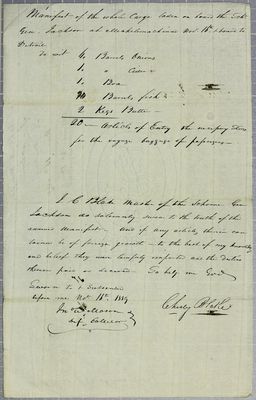 Manifest of the whole Cargo laden on board the Sch
Gen. Jackson at Michilimackinac Nov. 16th & bound to
Detroit
to wit
Barrels Onions
1. " Cider
1. Box
Barrels fish
2 Kegs Butter
20 — Articles of Entry the necessary Stores
for the voyage baggage of passengers
I C Blake Master of the Schooner Gen
Jackson do solemnly swear to the truth of the
annexed Manifest. And if any articles therein
be of foreign growth to the best of my knowledge
and belief they were lawfully imported and the duties
thereon paid or secured. So help me God
Sworn to & Subscribed
before me Nov. 16th
Charley Blake